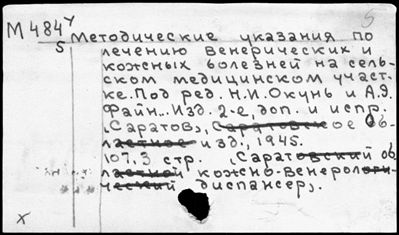 М484У 5
5 Методические указания по
лечению венерических и
кожных болезней на сель-
ском медицинском участ-
ке. Под ред. Н.И. Окунь и А.Э.
Файн... Изд. 2-е, доп. и испр.
(Саратов), Саратовское об-
ластное изд., 1945.
107,3 стр. (Саратовский об
ластной кожно-венерологи-
ческий диспансер).
x